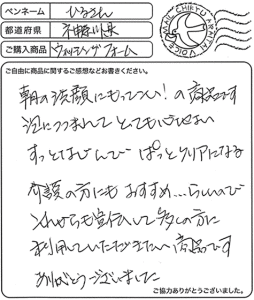 ペンネーム ひろさん
都道府県 神奈川県
ご購入商品 ウォッシングフォーム
MAN CHIKYU ARIGATAI VOICE
ご自由に商品に関するご感想などお書きください。
朝の洗顔にもってこい!の商品です
泡につつまれてとても心地よい
すっとなじんで ぱっとクリアになる
介護の方にもおすすめ…らしいので
これからも宣伝して多くの方に
利用していただきたい商品です
ありがとうございました
ご協力ありがとうございました。